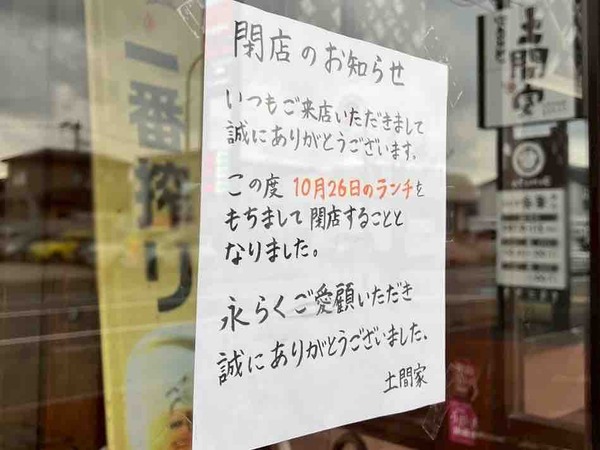 閉店のお知らせ
いつもご来店いただきまして
誠にありがとうございます。
この度 10月26日のランチを
もちまして閉店することと
なりました。
永らくご愛顧いただき
誠にありがとうございました。
土間家
一番搾り
土間家